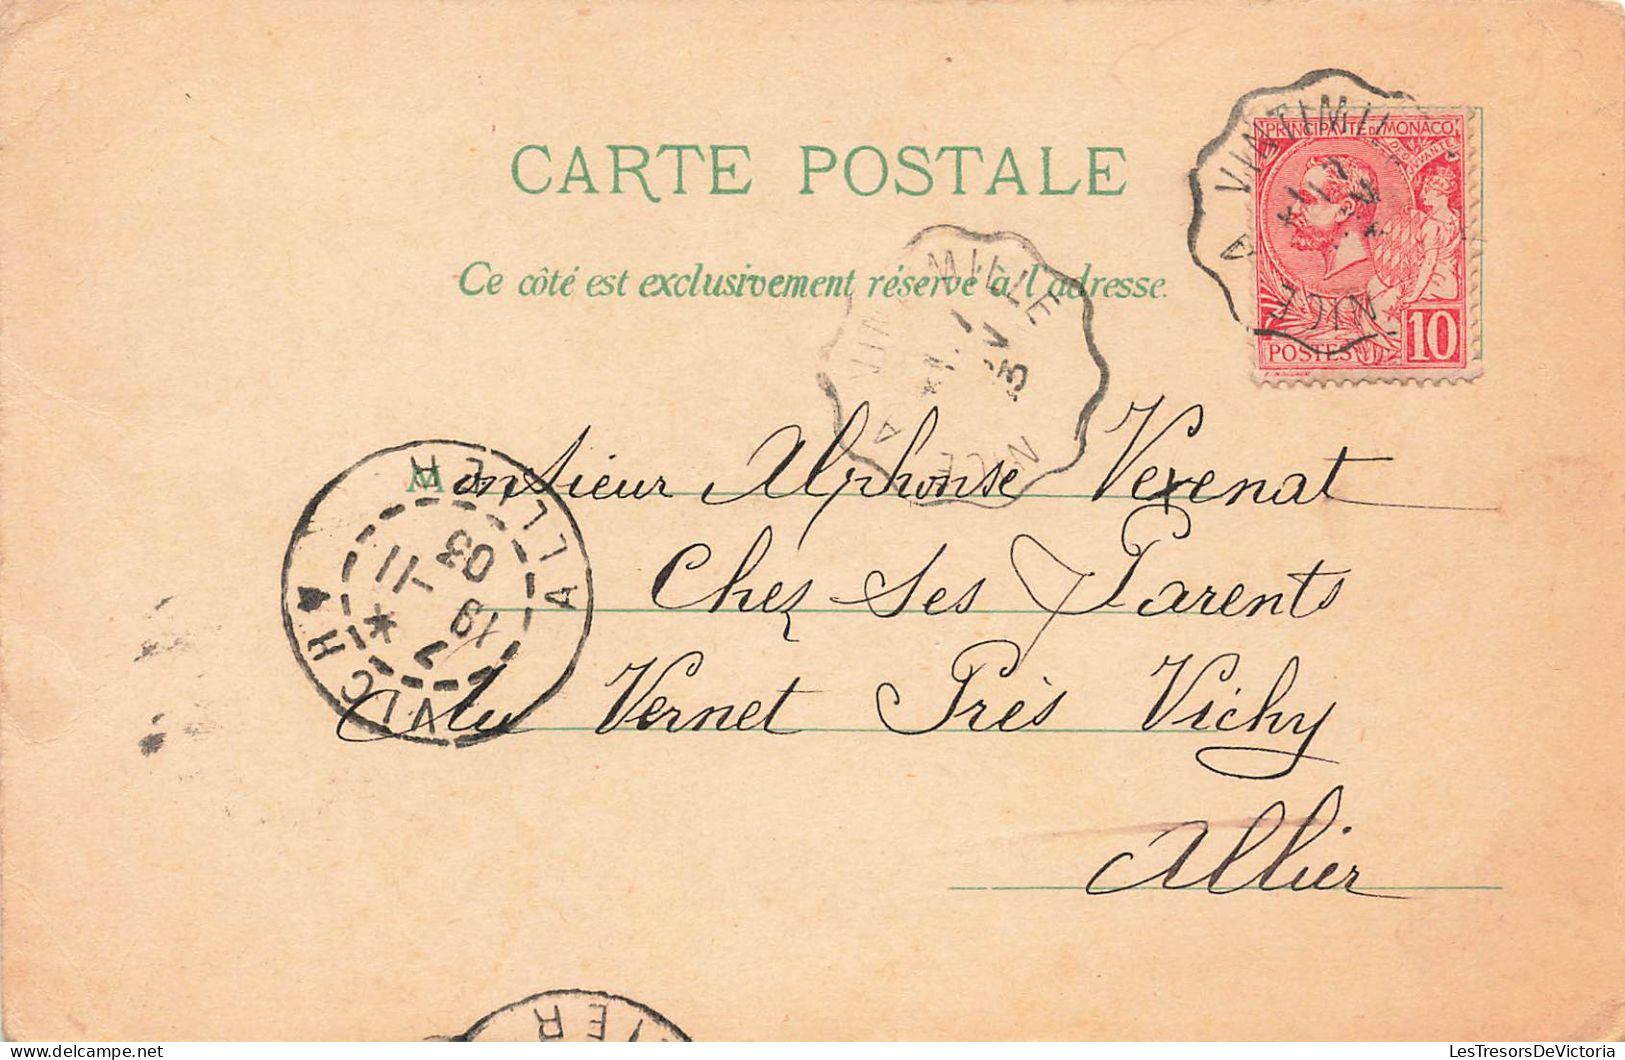 CARTE POSTALE
Ce côté est exclusivement réservé à l'adresse.
PRINCIPAUTÉ DE MONACO
DEO JUVANTE
POSTES 10
VINTIMILLE A NICE
VINTIMILLE A NICE
Monsieur Alphonse Vexenat
Chez Ses Parents
Au Vernet Près Vichy
Allier
VICHY ALLIER
7 * 19 -11 03
IER
LesTresorsDeVictoria